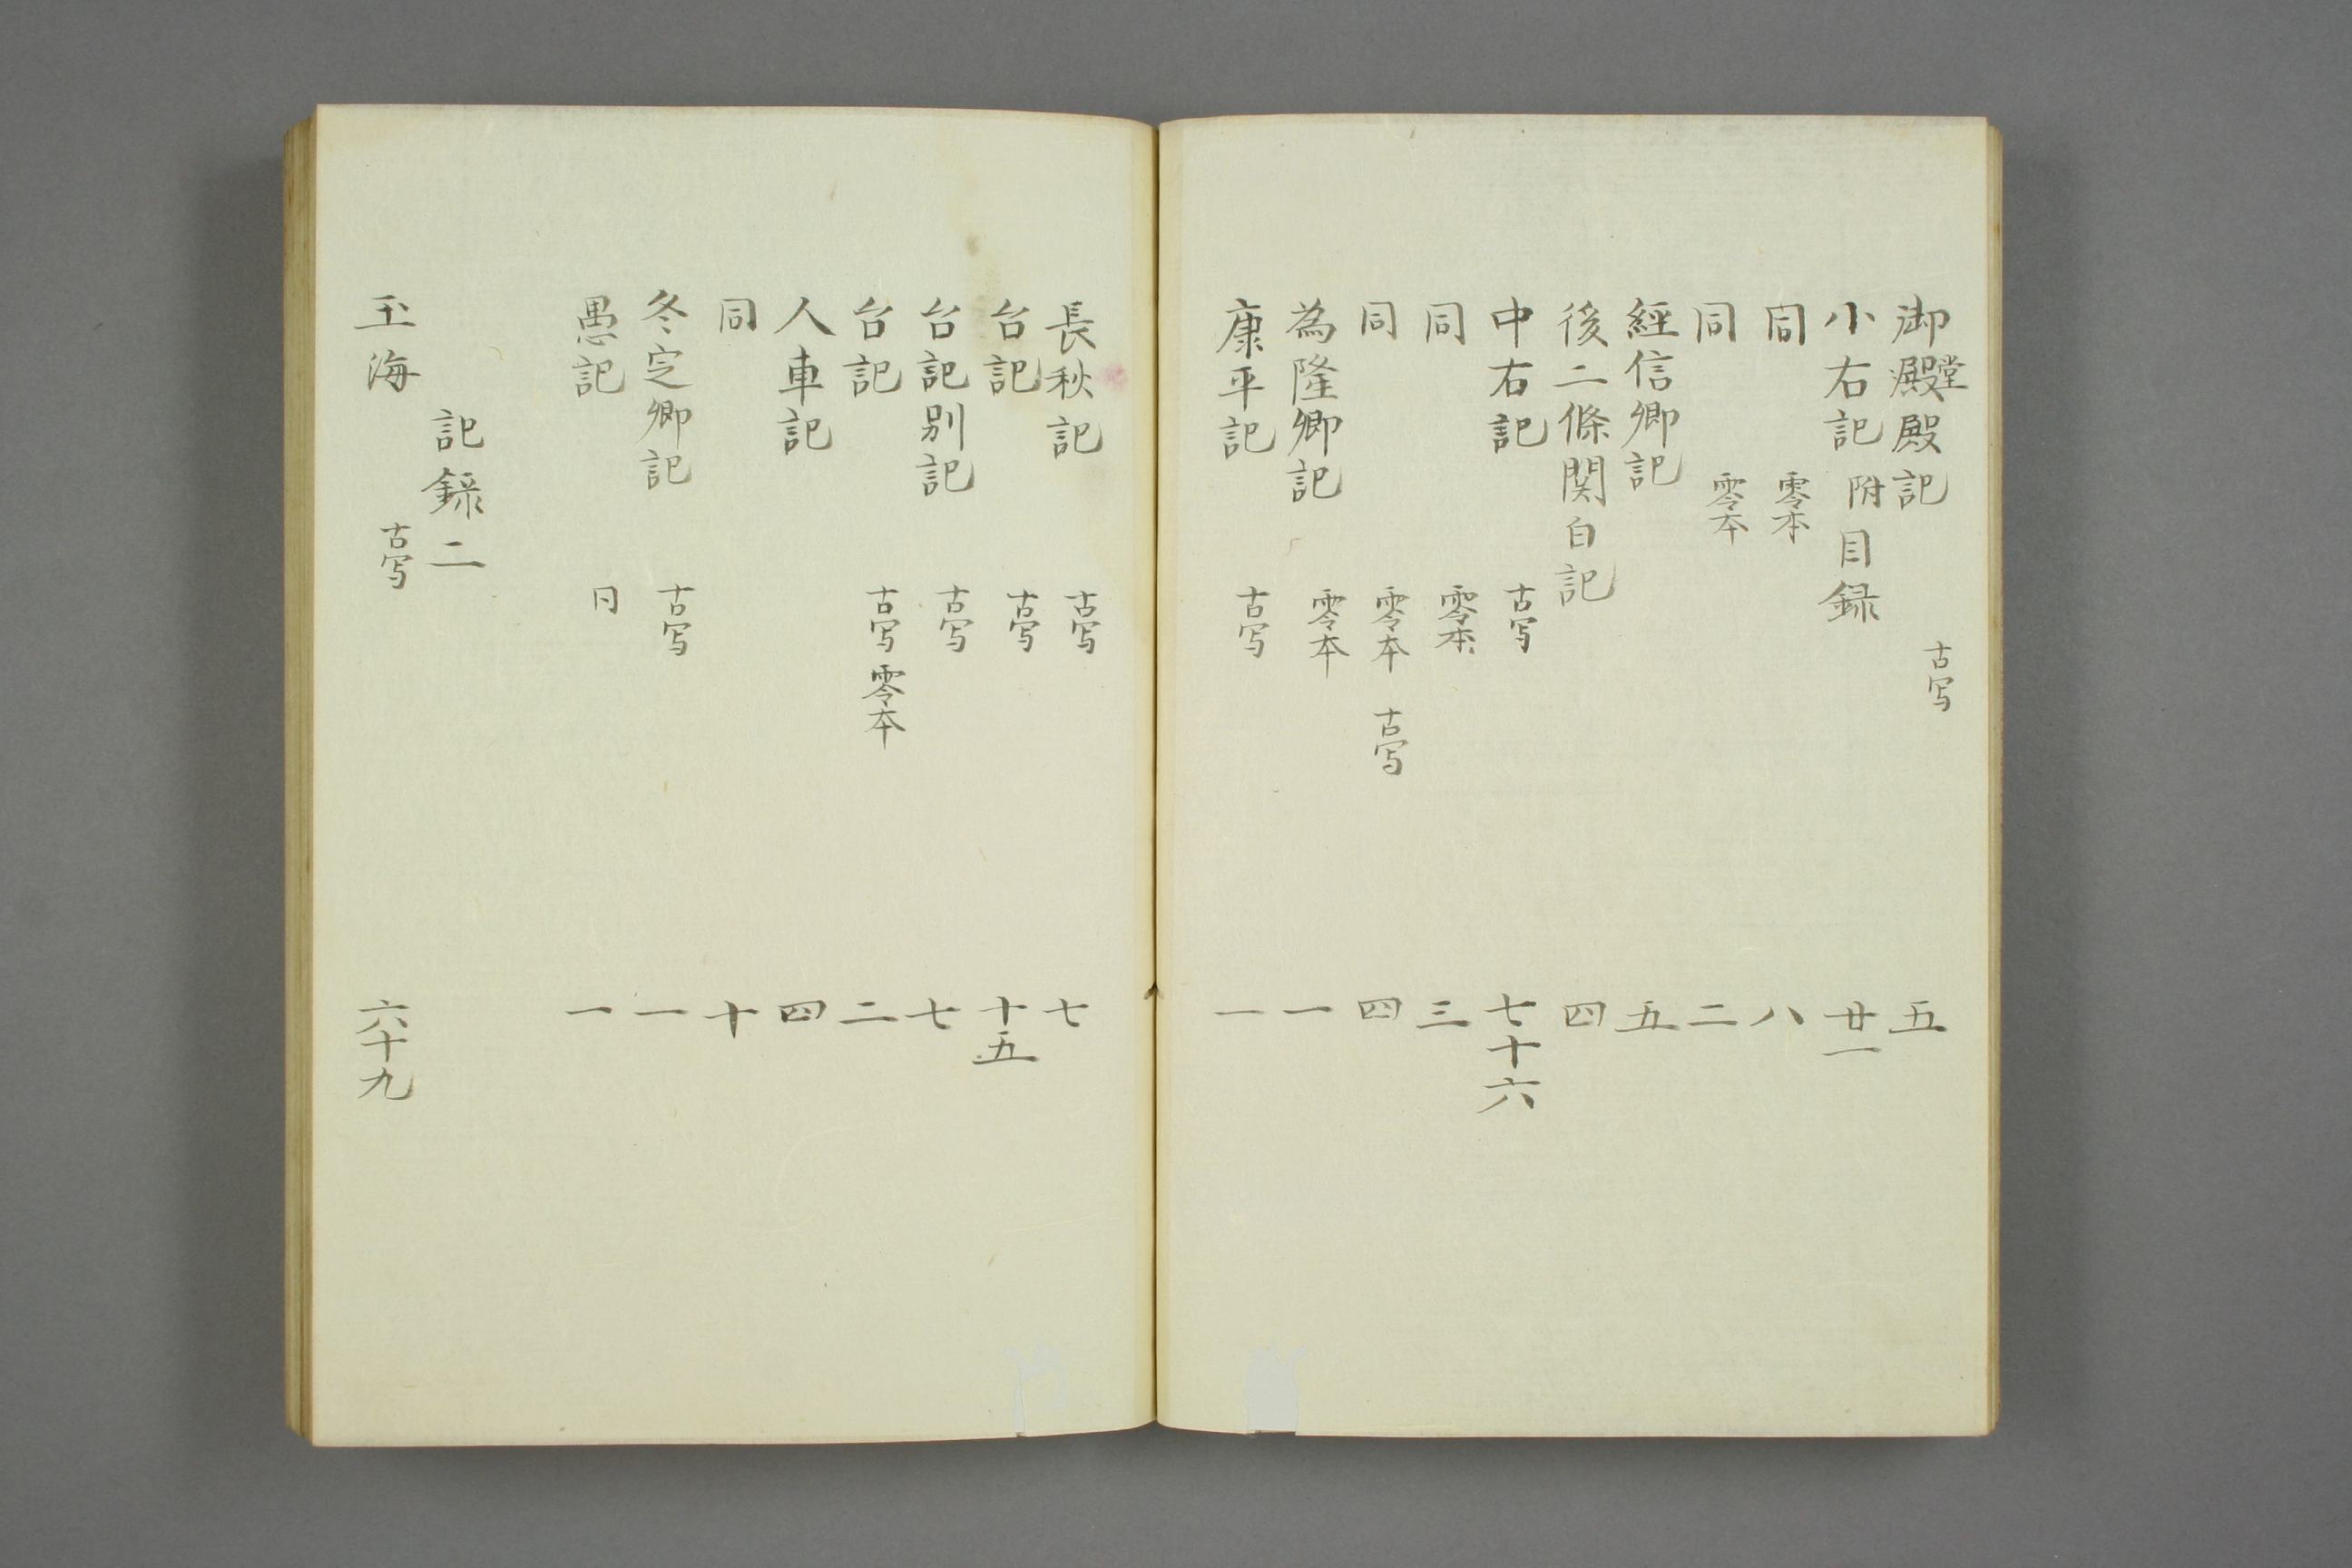 御殿堂殿記 古写 五
小右記 附目録 廿一
同 零本 八
同 零本 二
經信卿記 五
後二條関白記 四
中右記 古写 七十六
同 零本 三
同 零本 古写 四
為隆卿記 零本 一
康平記 古写 一
長秋記 古写 七
台記 古写 十五
台記別記 古写 七
台記 古写 零本 二
人車記 四
同 十
冬定卿記 古写 一
愚記 同 一
記録二
玉海 古写 六十九